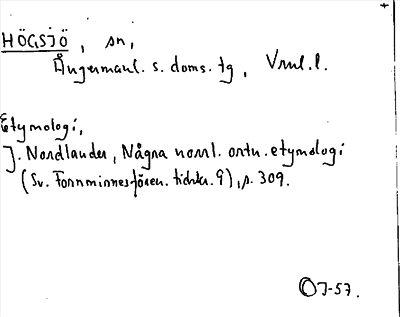 HÖGSJÖ, sn,
Ångermanl. s. doms. tg, Vrnl. l.
Etymologi,
J. Nordlander, Några norrl. ortn. etymologi
(Sv. Fornminnesfören. tidskr. 9), s. 309.
OJ-57.